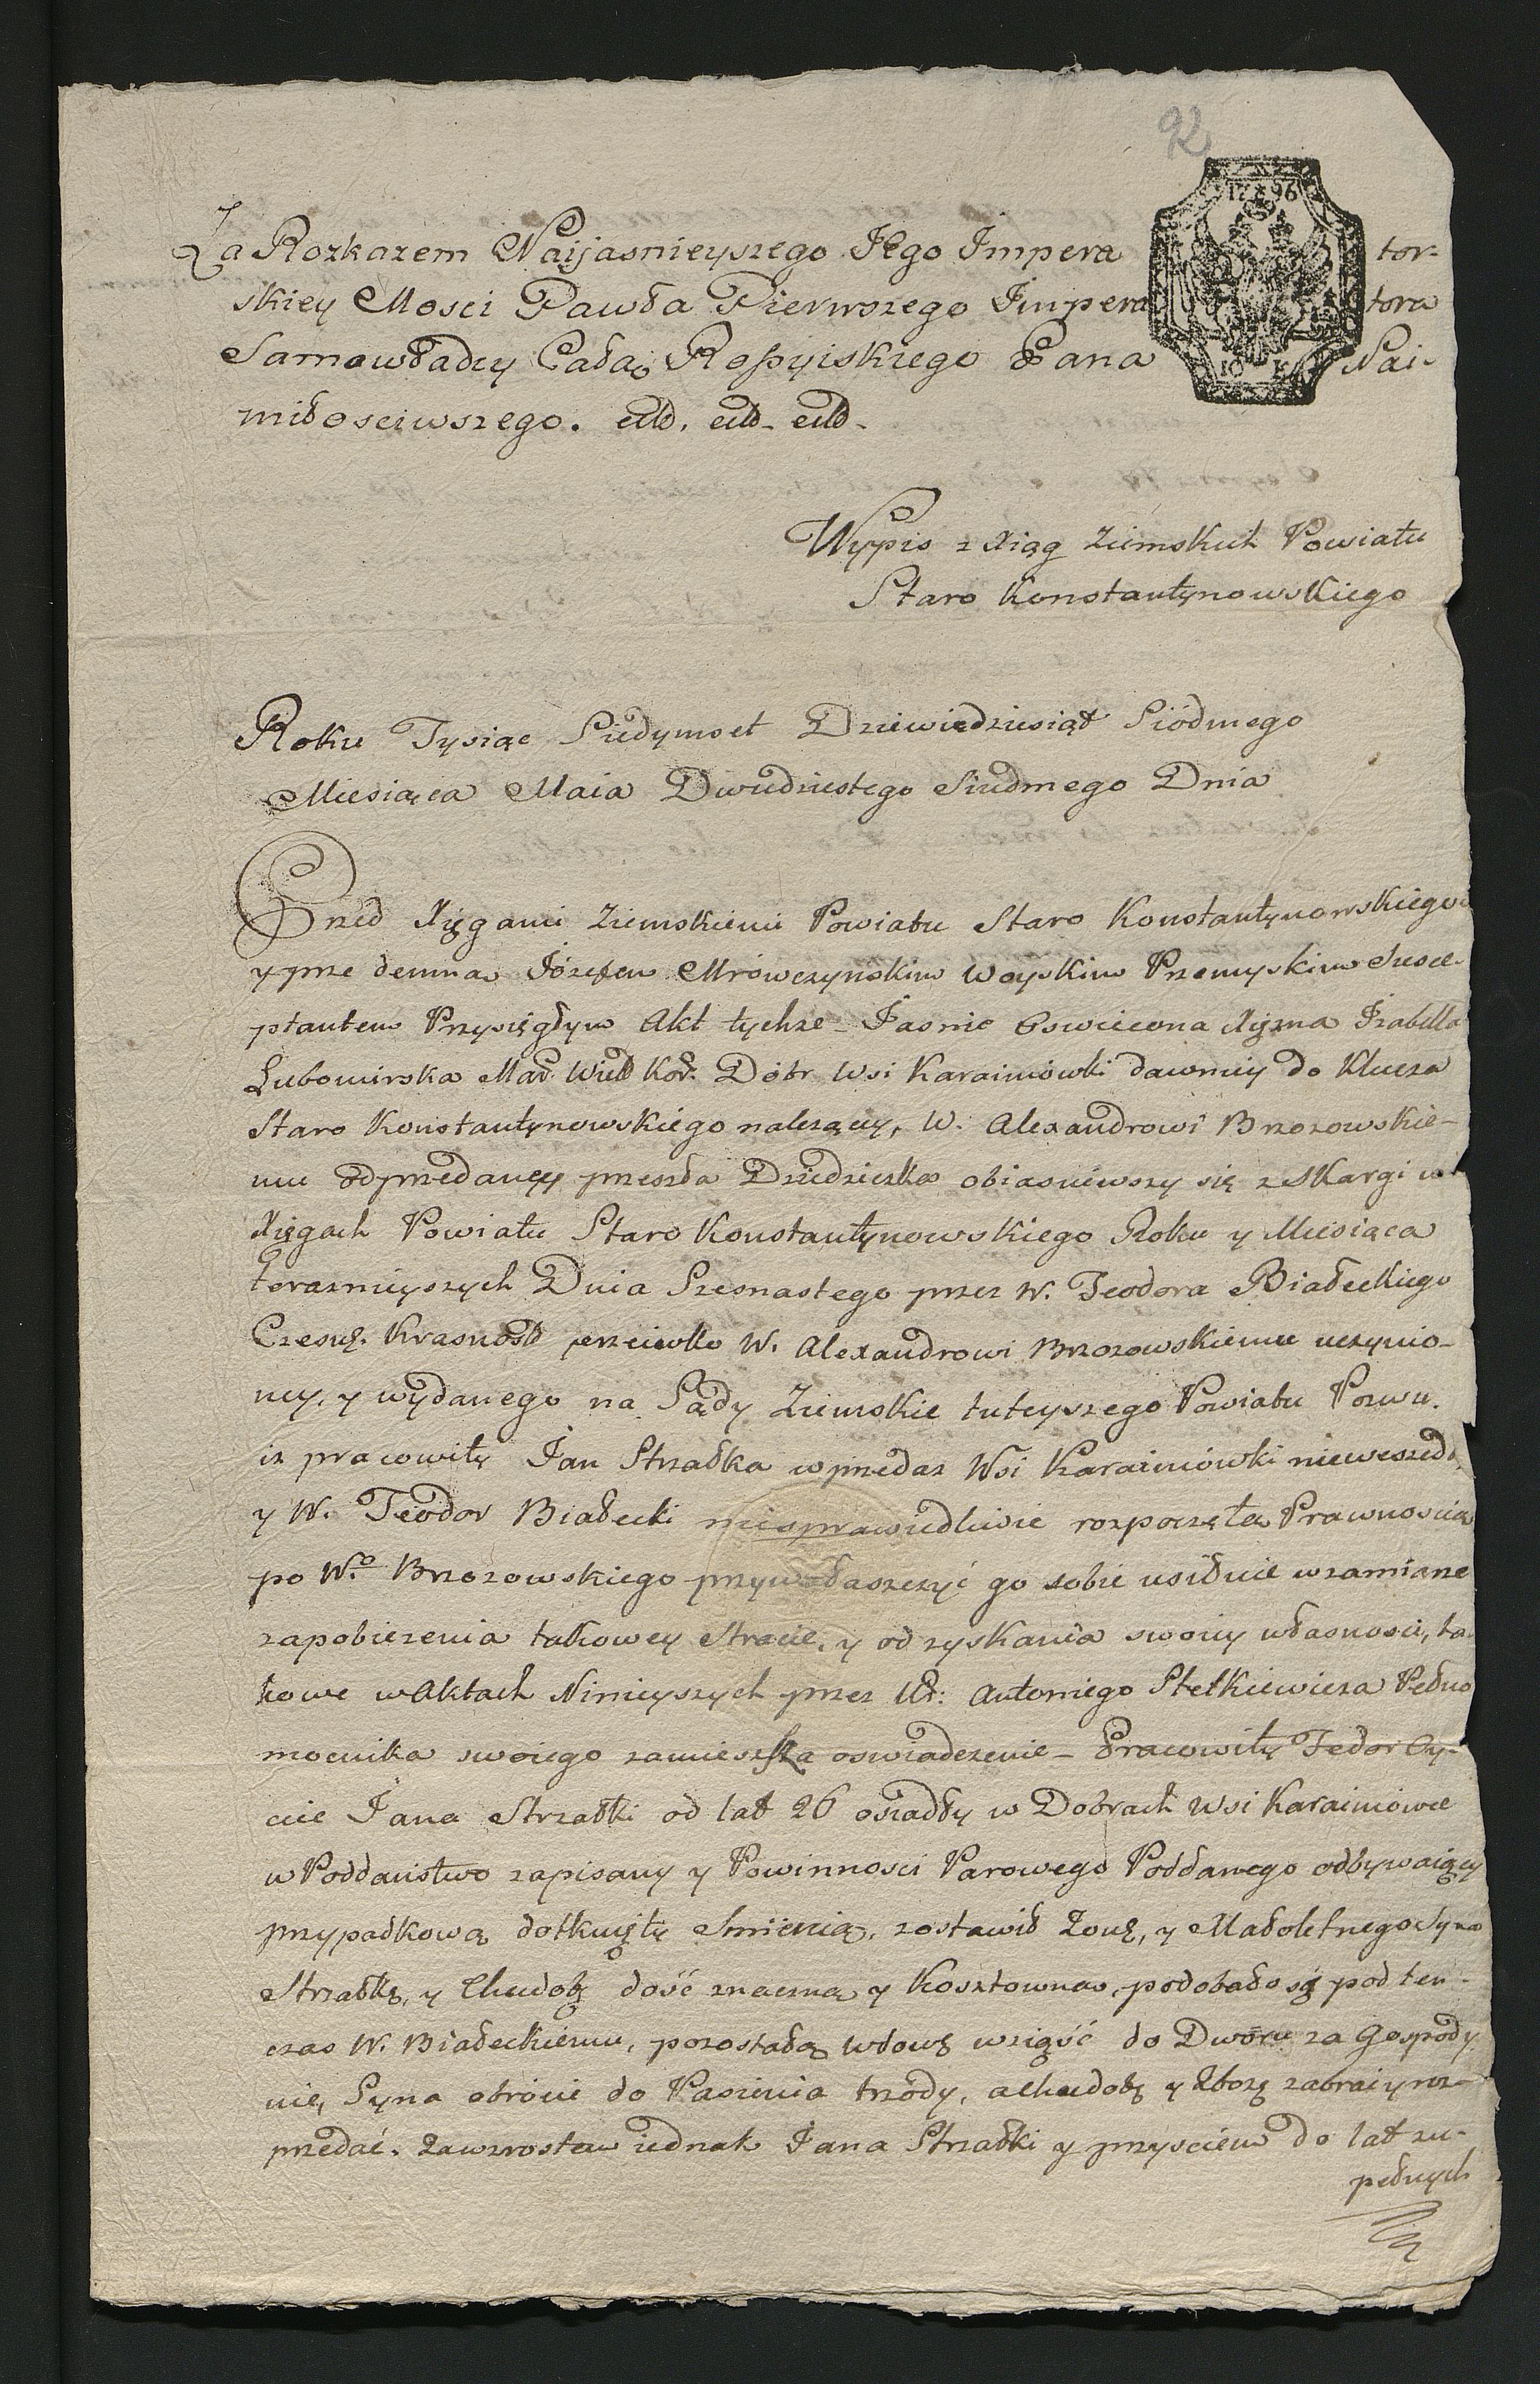 92
1796
Za Rozkazem Nayjasnieyszego Jego Impera tor-
skiey Mosci Pawła Pierwszego Impera tora
Samowładcy Całao Rossyiskiego Pana Nai-
miłosciwszego. etld. etld. etld.
10 K
Wypis z Xiąg Ziemskich Powiatu
Staro Konstantynowskiego
Roku Tysiąc Siedymset Dziewiedziesiąt Siódmego
Miesiąca Maia Dwudziestego Siudmego Dnia
Przed Xięgami Ziemskiemi Powiatu Staro Konstantynowskiego
y prze demna Józefem Mrówczyńskim Woyskim Przemyskim Susce-
ptantem Przysięgłym Akt tychze _ Jasnie Oswiecona Xięzna Izabella
Lubomirska Mar. Wield Kor. Dóbr Wsi Karaimówki dawniey do Klucza
Staro Konstantynowskiego nalezącey, W. Alexandrowi Brzozowskie-
mu odprzedaney przeszła Dziedziczka obiasniwszy się z skargi w
Xięgach Powiatu Staro Konstantynowskiego Roku y Miesiąca
terazniyszych Dnia Szesnastego przez W. Teodora Białeckiego
Czesni. Krasnost przeciwko W. Alexandrowi Brzozowskiemu uczynio-
ney, y wydanego na Sądy Ziemskie tuteyszego Powiatu Pozwu.
iz pracowity Jan Strzałka w przedaz Wsi Karaimówki niewszedł,
y W. Teodor Białecki niesprawiedliwie rozpoczęta Prawnoscia
po W.o Brzozowskiego przywłaszczyć go sobie usiłuie w zamiarze
zapobiezenia takowey stracie, y od zyskania swoiey własnosci, ta-
kowe w Aktach Ninieyszych przez Ur: Antoniego Stetkiewicza Pełno
mocnika swoiego zamieszcza oswiadczenie _ Pracowity Fedor Oy-
ciec Jana Strzałki od lat 26 osiadły w Dobrach Wsi Karaimowce
w Poddanstwo zapisany y Powinnosci Parowego Poddanego odbywaiący
przypadkową dotknięty Smiercią, zostawił Zonę, y Małoletnego Syna
Strzałkę, y Chudobę dość znaczna y Kosztowna, podobało się pod ten-
czas W. Białeckiemu, pozostałą wdowę wziąść do Dworu za Gospody
nię, Syna obrócić do Pasienia trzody, a Chudobę y Zboze zabrać y roz-
przedać. Zawzrostem iednak Jana Strzałki y przysciem do lat zu-
pełnych